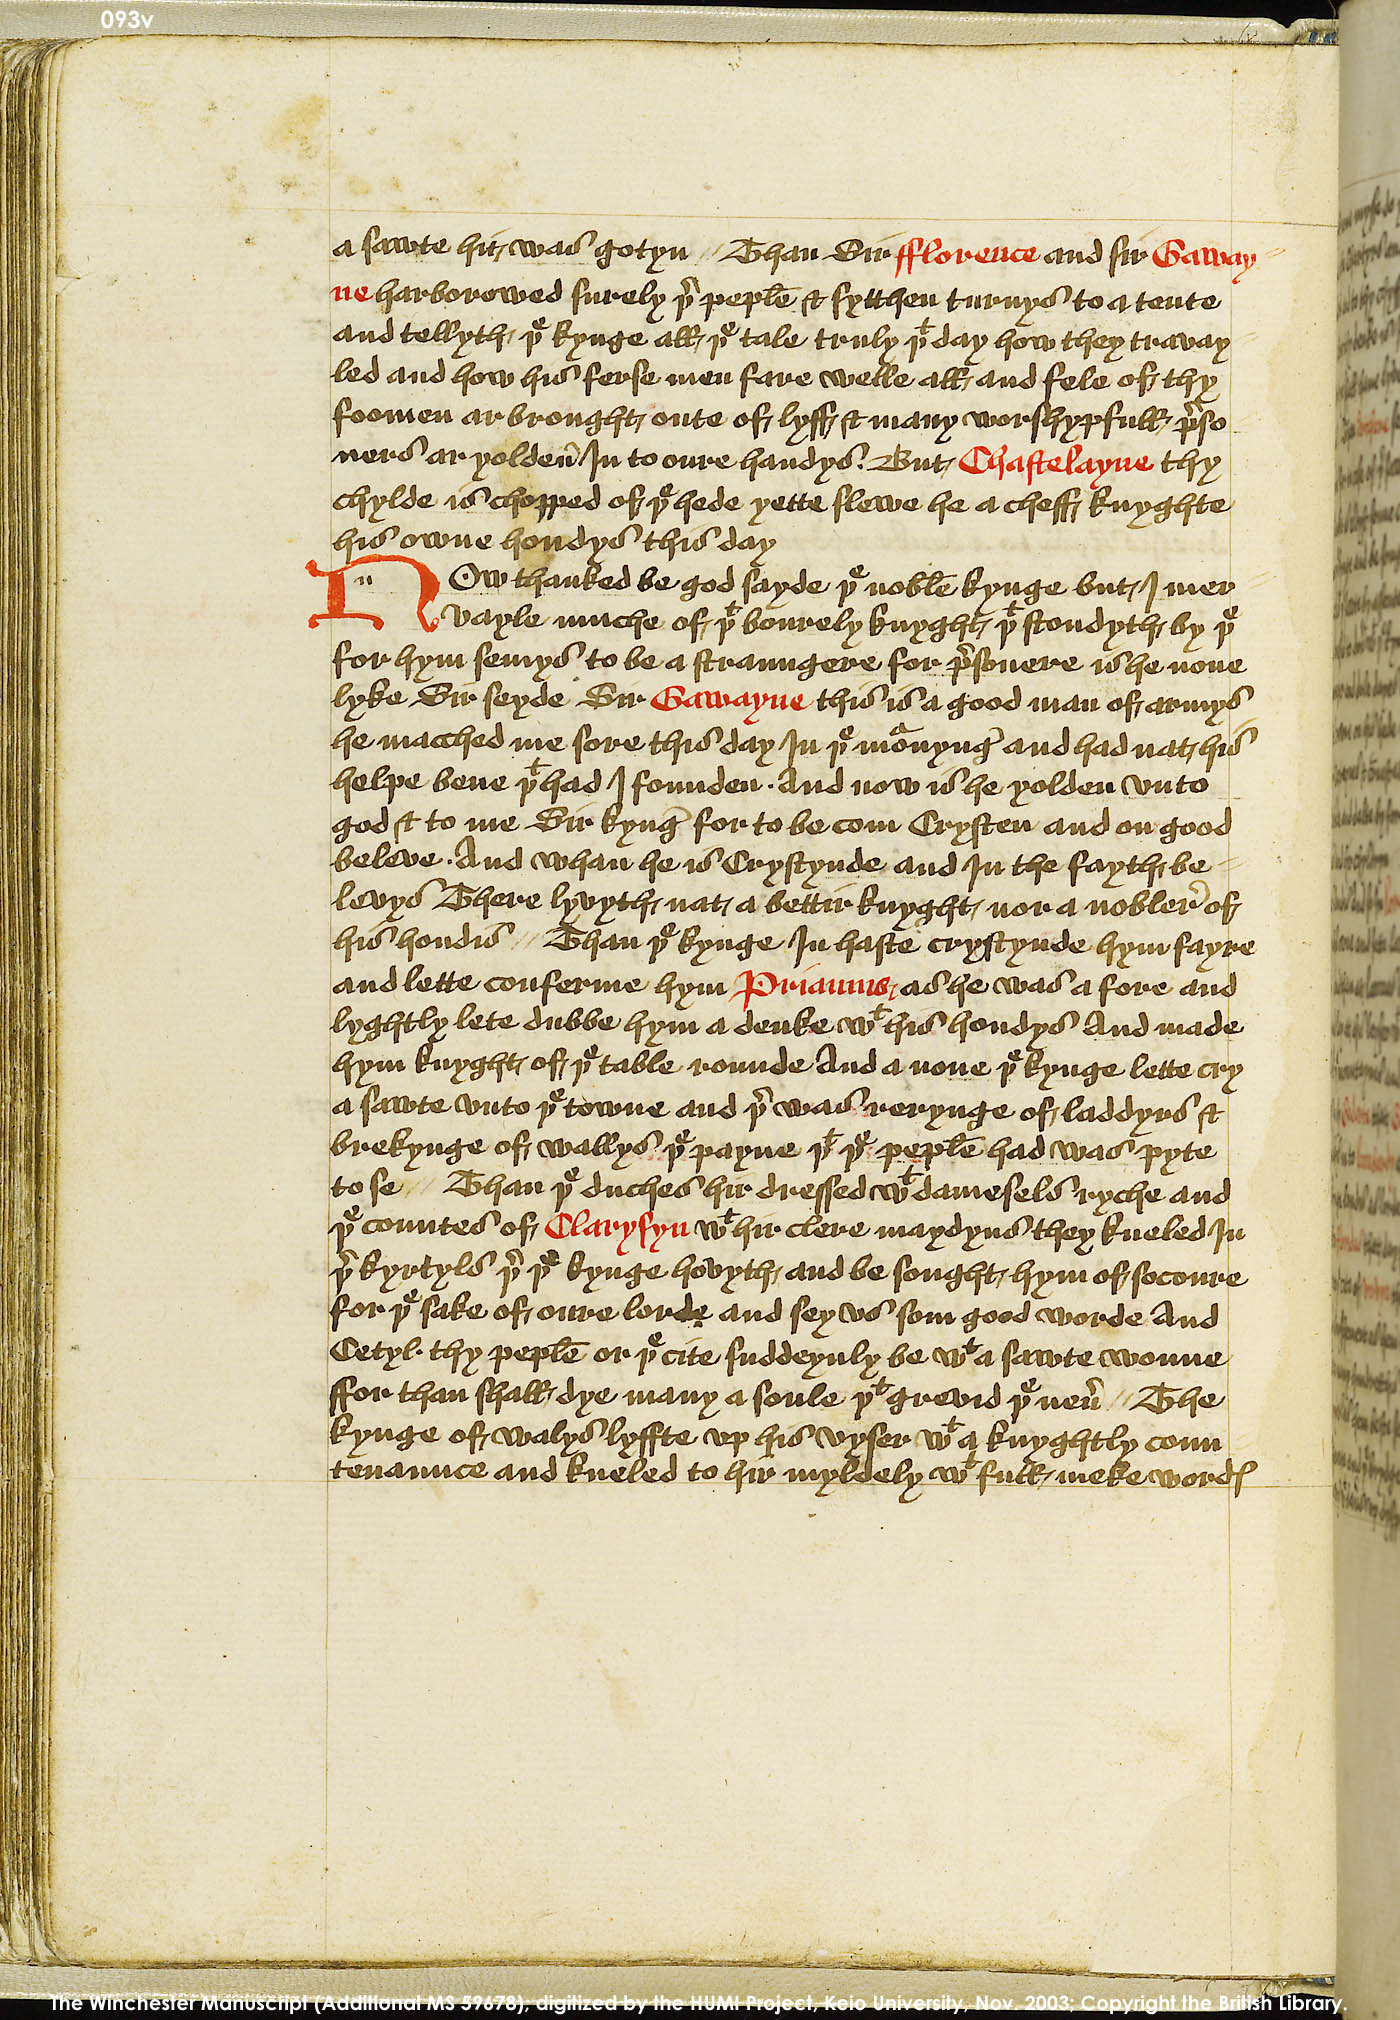 093v
a sawte hit was gotyn // Than Sir fflorence and sir Gaway=
ne harborowed surely þer peple & sytthen turnys to a tente
and tellyth þe kynge all þe tale truly þt day how they travay=
led and how his ferse men fare welle all and fele of thy
foomen ar brought oute of lyff & many worshypfull preso
ners ar yolden In to oure handys. But Chastelayne thy
chylde is chopped of þe hede yette slewe he a cheff knyghte
his owne hondys this day
NOw thanked be god sayde þe noble kynge but I mer=
vayle muche of þt bourely knyght þt stondyth by þe
for hym semys to be a straungere for presonere is he none
lyke Sir seyde Sir Gawayne this is a good man of armys
he macched me sore this day In þe mornynge and had nat his
helpe bene þt had I founden. And now is he yolden vnto
god & to me Sir kynge for to be com Crysten and on good
beleve. And whan he is Crystynde and In the fayth be=
levys There lyvyth nat a bettir knyght nor a nobler of
his hondis // Than þe kynge In haste crystynde hym fayre
and lette conferme hym Priamus as he was a fore and
lyghtly lete dubbe hym a deuke wt his hondys And made
hym knyght of þe table rounde And a none þe kynge lette cry
a sawte vnto þe towne and þer was rerynge of laddyrs &
brekynge of wallys þe payne þt þe peple had was pyte
to se // Than þe duches hir dressed wt damesels ryche and
þe countes of Clarysyn wt hir clere maydyns they kneled In
þer kyrtyls þer þe kynge hovyth and be sought hym of socoure
for þe sake of oure lorde and sey vs som good worde And
Cetyl thy peple or þe cite suddeynly be wt a sawte wonne
ffor than shall dye many a soule þt grevid þe never // The
kynge of walys lyffte vp his vyser wt a knyghtly coun
tenaunce and kneled to hir myldely wt full meke wordes
The Winchester Manuscript (Additional MS 59678), digitized by the HUMI Project, Keio University, Nov. 2003; Copyright the British Library.